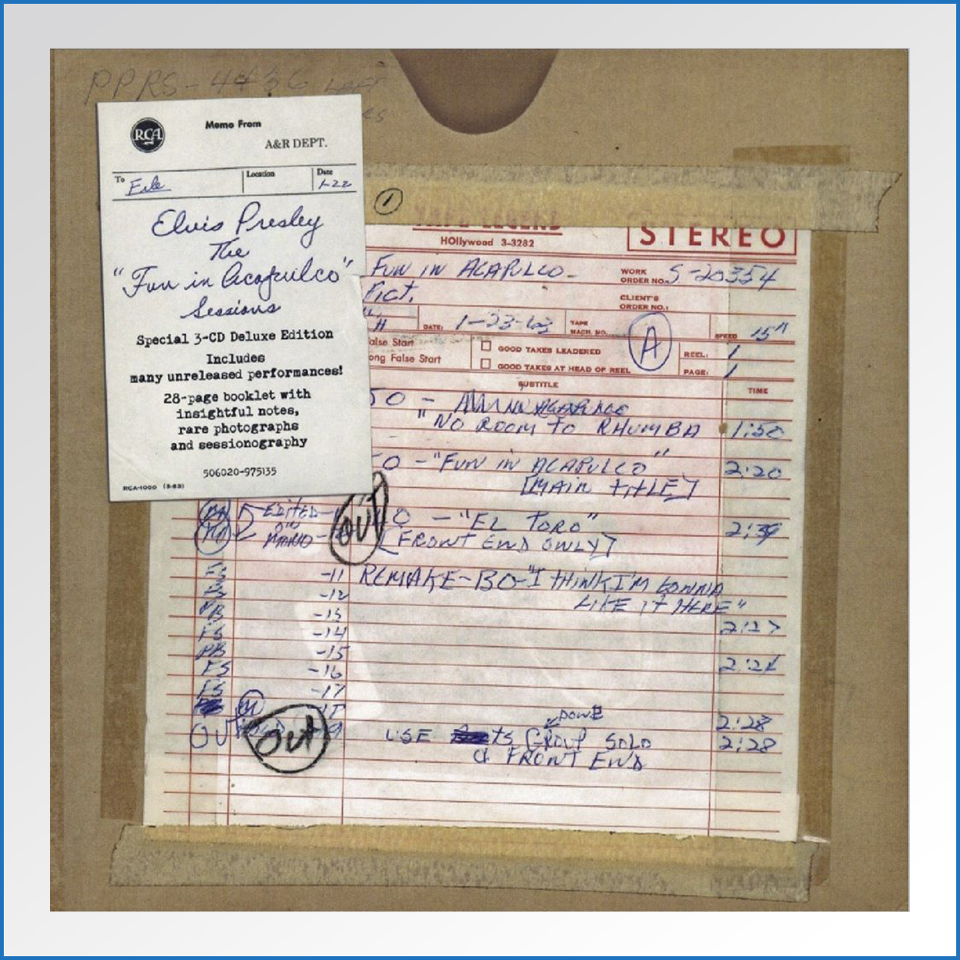 PPRS-4436
RCA
Memo From
A&R DEPT.
To File
Location
Date 1-22
Elvis Presley
The
"Fun in Acapulco"
Sessions
Special 3-CD Deluxe Edition
Includes
many unreleased performances!
28-page booklet with
insightful notes,
rare photographs
and sessionography
506020-975135
RCA-1000 (3-63)
1
HOllywood 3-3282
STEREO
FUN IN ACAPULCO-
WORK ORDER NO. S-20354
PICT.
CLIENT'S ORDER NO.:
H
DATE: 1-23-63
TAPE MACH. NO.
A
SPEED 15"
alse Start
GOOD TAKES LEADERED
REEL: 1
ong False Start
GOOD TAKES AT HEAD OF REEL
PAGE: 1
SUBTITLE
TIME
O -
"NO ROOM TO RHUMBA
1:50
O - "FUN IN ACAPULCO"
2:20
[MAIN TITLE]
EDITED-
OUT
O - "EL TORO"
2:39
MONO-
[FRONT END ONLY]
FS -11 REMAKE-BO-"I THINK I'M GONNA
FS -12 LIKE IT HERE"
PB -13
2:27
FS -14
PB -15
2:24
FS -16
FS -17
M
2:28
DOWN
OUT
OUT
USE GROUP SOLO
2:28
& FRONT END